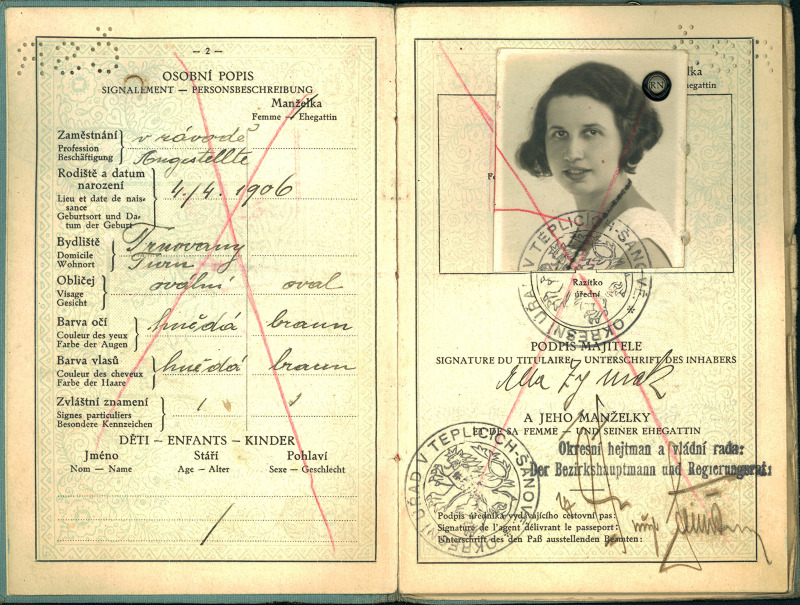 — 2 —
OSOBNÍ POPIS
SIGNALEMENT — PERSONSBESCHREIBUNG
Manželka
Femme — Ehegattin
Zaměstnání
Profession
Beschäftigung
v závodě
Angestellte
Rodiště a datum
narození
Lieu et date de nais-
sance
Geburtsort und Da-
tum der Geburt
4./4. 1906
Bydliště
Domicile
Wohnort
Trnovany
Turn
Obličej
Visage
Gesicht
ovální oval
Barva očí
Couleur des yeux
Farbe der Augen
hnědá braun
Barva vlasů
Couleur des cheveux
Farbe der Haare
hnědá braun
Zvláštní znamení
Signes particuliers
Besondere Kennzeichen
DĚTI — ENFANTS — KINDER
Jméno Stáří Pohlaví
Nom — Name Age — Alter Sexe — Geschlecht
lka
egattin
RN
OKRESNÍ ÚŘAD V TEPLICÍCH-ŠANOVĚ
Razítko
úřední
PODPIS MAJITELE
SIGNATURE DU TITULAIRE — UNTERSCHRIFT DES INHABERS
A JEHO MANŽELKY
ET DE SA FEMME — UND SEINER EHEGATTIN
Okresní hejtman a vládní rada:
Der Bezirkshauptmann und Regierungsrat:
OKRESNÍ ÚŘAD V TEPLICÍCH-ŠANOVĚ
Podpis úředníka vydávajícího cestovní pas:
Signature de l'agent délivrant le passeport:
Unterschrift des den Paß ausstellenden Beamten: